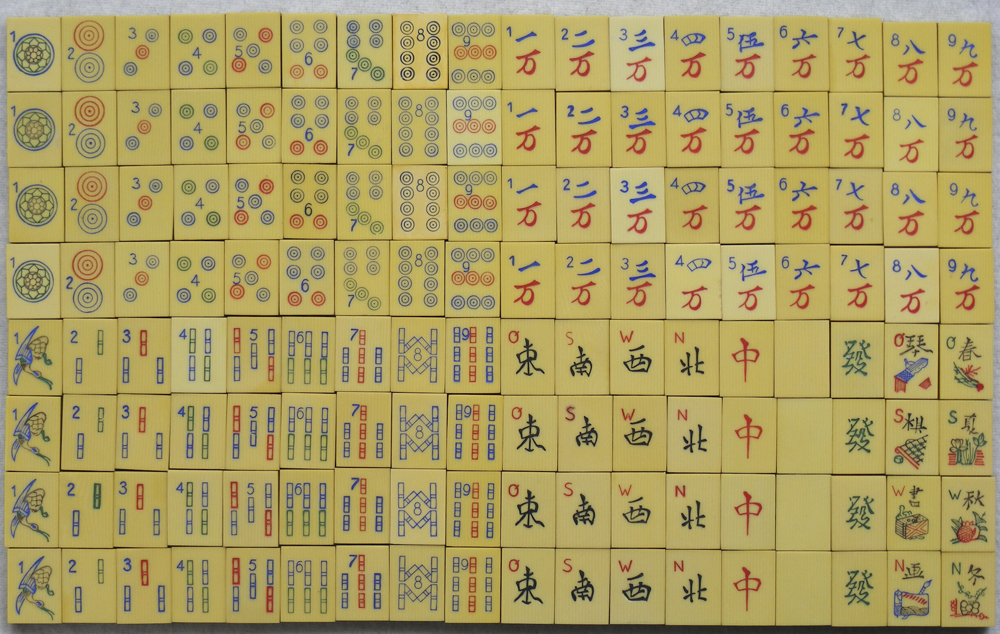 1 2 3 4 5 6 7 8 9 1 一 2 二 3 三 4 四 5 伍 6 六 7 七 8 八 9 九
万 万 万 万 万 万 万 万 万
1 2 3 4 5 6 7 8 9 1 一 2 二 3 三 4 四 5 伍 6 六 7 七 8 八 9 九
万 万 万 万 万 万 万 万 万
1 2 3 4 5 6 7 8 9 1 一 2 二 3 三 4 四 5 伍 6 六 7 七 8 八 9 九
万 万 万 万 万 万 万 万 万
1 2 3 4 5 6 7 8 9 1 一 2 二 3 三 4 四 5 伍 6 六 7 七 8 八 9 九
万 万 万 万 万 万 万 万 万
1 2 3 4 5 6 7 8 9 O 東 S 南 W 西 N 北 中 發 O 琴 O 春
1 2 3 4 5 6 7 8 9 O 東 S 南 W 西 N 北 中 發 S 棋 S 夏
1 2 3 4 5 6 7 8 9 O 東 S 南 W 西 N 北 中 發 W 書 W 秋
1 2 3 4 5 6 7 8 9 O 東 S 南 W 西 N 北 中 發 N 画 N 冬